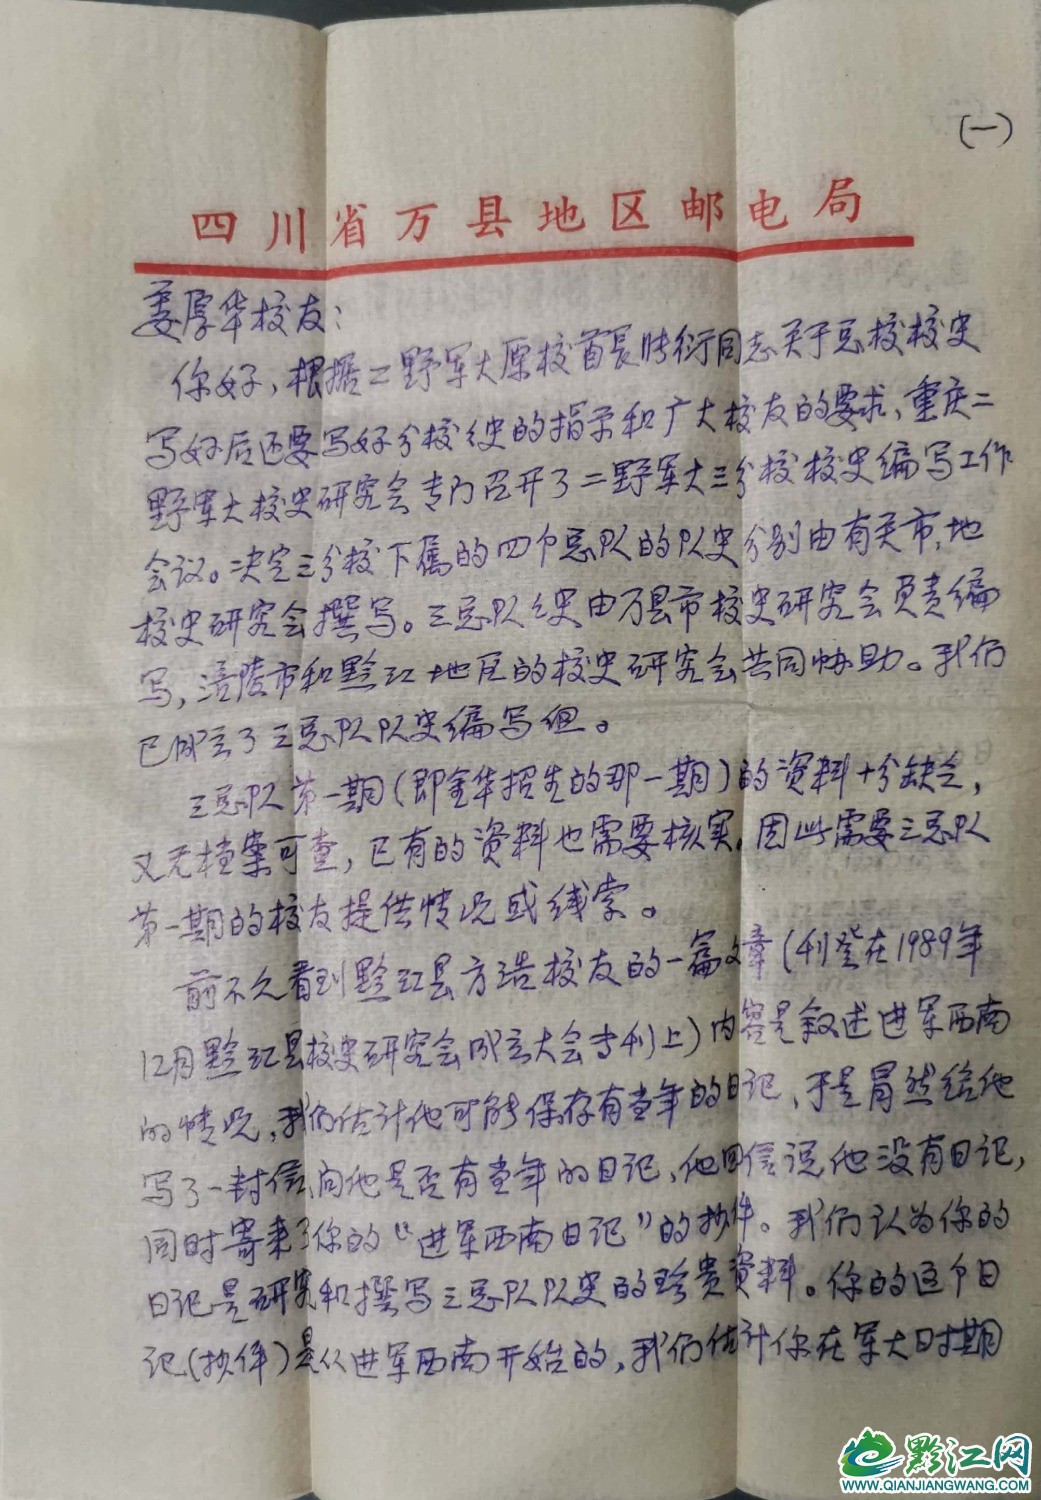 (一)
四川省万县地区邮电局
娄厚华校友:
你好,根据二野军大原校首长陈衍同志关于总校校史
写好后还要写好分校纟史的指示和广大校友的要求,重庆二
野军大校史研究会专门召开了二野军大三分校校史编写工作
会议。决定三分校下属的四个总队的队史分别由有关市、地
校史研究会撰写。三总队纟史由万县市校史研究会负责编
写,涪陵市和黔江地区的校史研究会共同协助。我们
已成立了三总队队史编写组。
三总队第一期(即金华招生的那一期)的资料十分缺乏,
又无档案可查,已有的资料也需要核实,因此需要三总队
第一期的校友提供情况或线索。
前不久看到黔江县方浩校友的一篇文章(刊登在1989年
12月黔江县校史研究会成立大会专刊上)内容是叙述进军西南
的情况,我们估计他可能保存有当年的日记,于是冒然给他
写了一封信,问他是否有当年的日记,他回信说他没有日记,
同时寄来了你的“进军西南日记”的抄件。我们认为你的
日记是研究和撰写三总队队史的珍贵资料。你的这个日
记(抄件)是从进军西南开始的,我们估计你在军大时期
黔江网
WWW.QIANJIANGWANG.COM